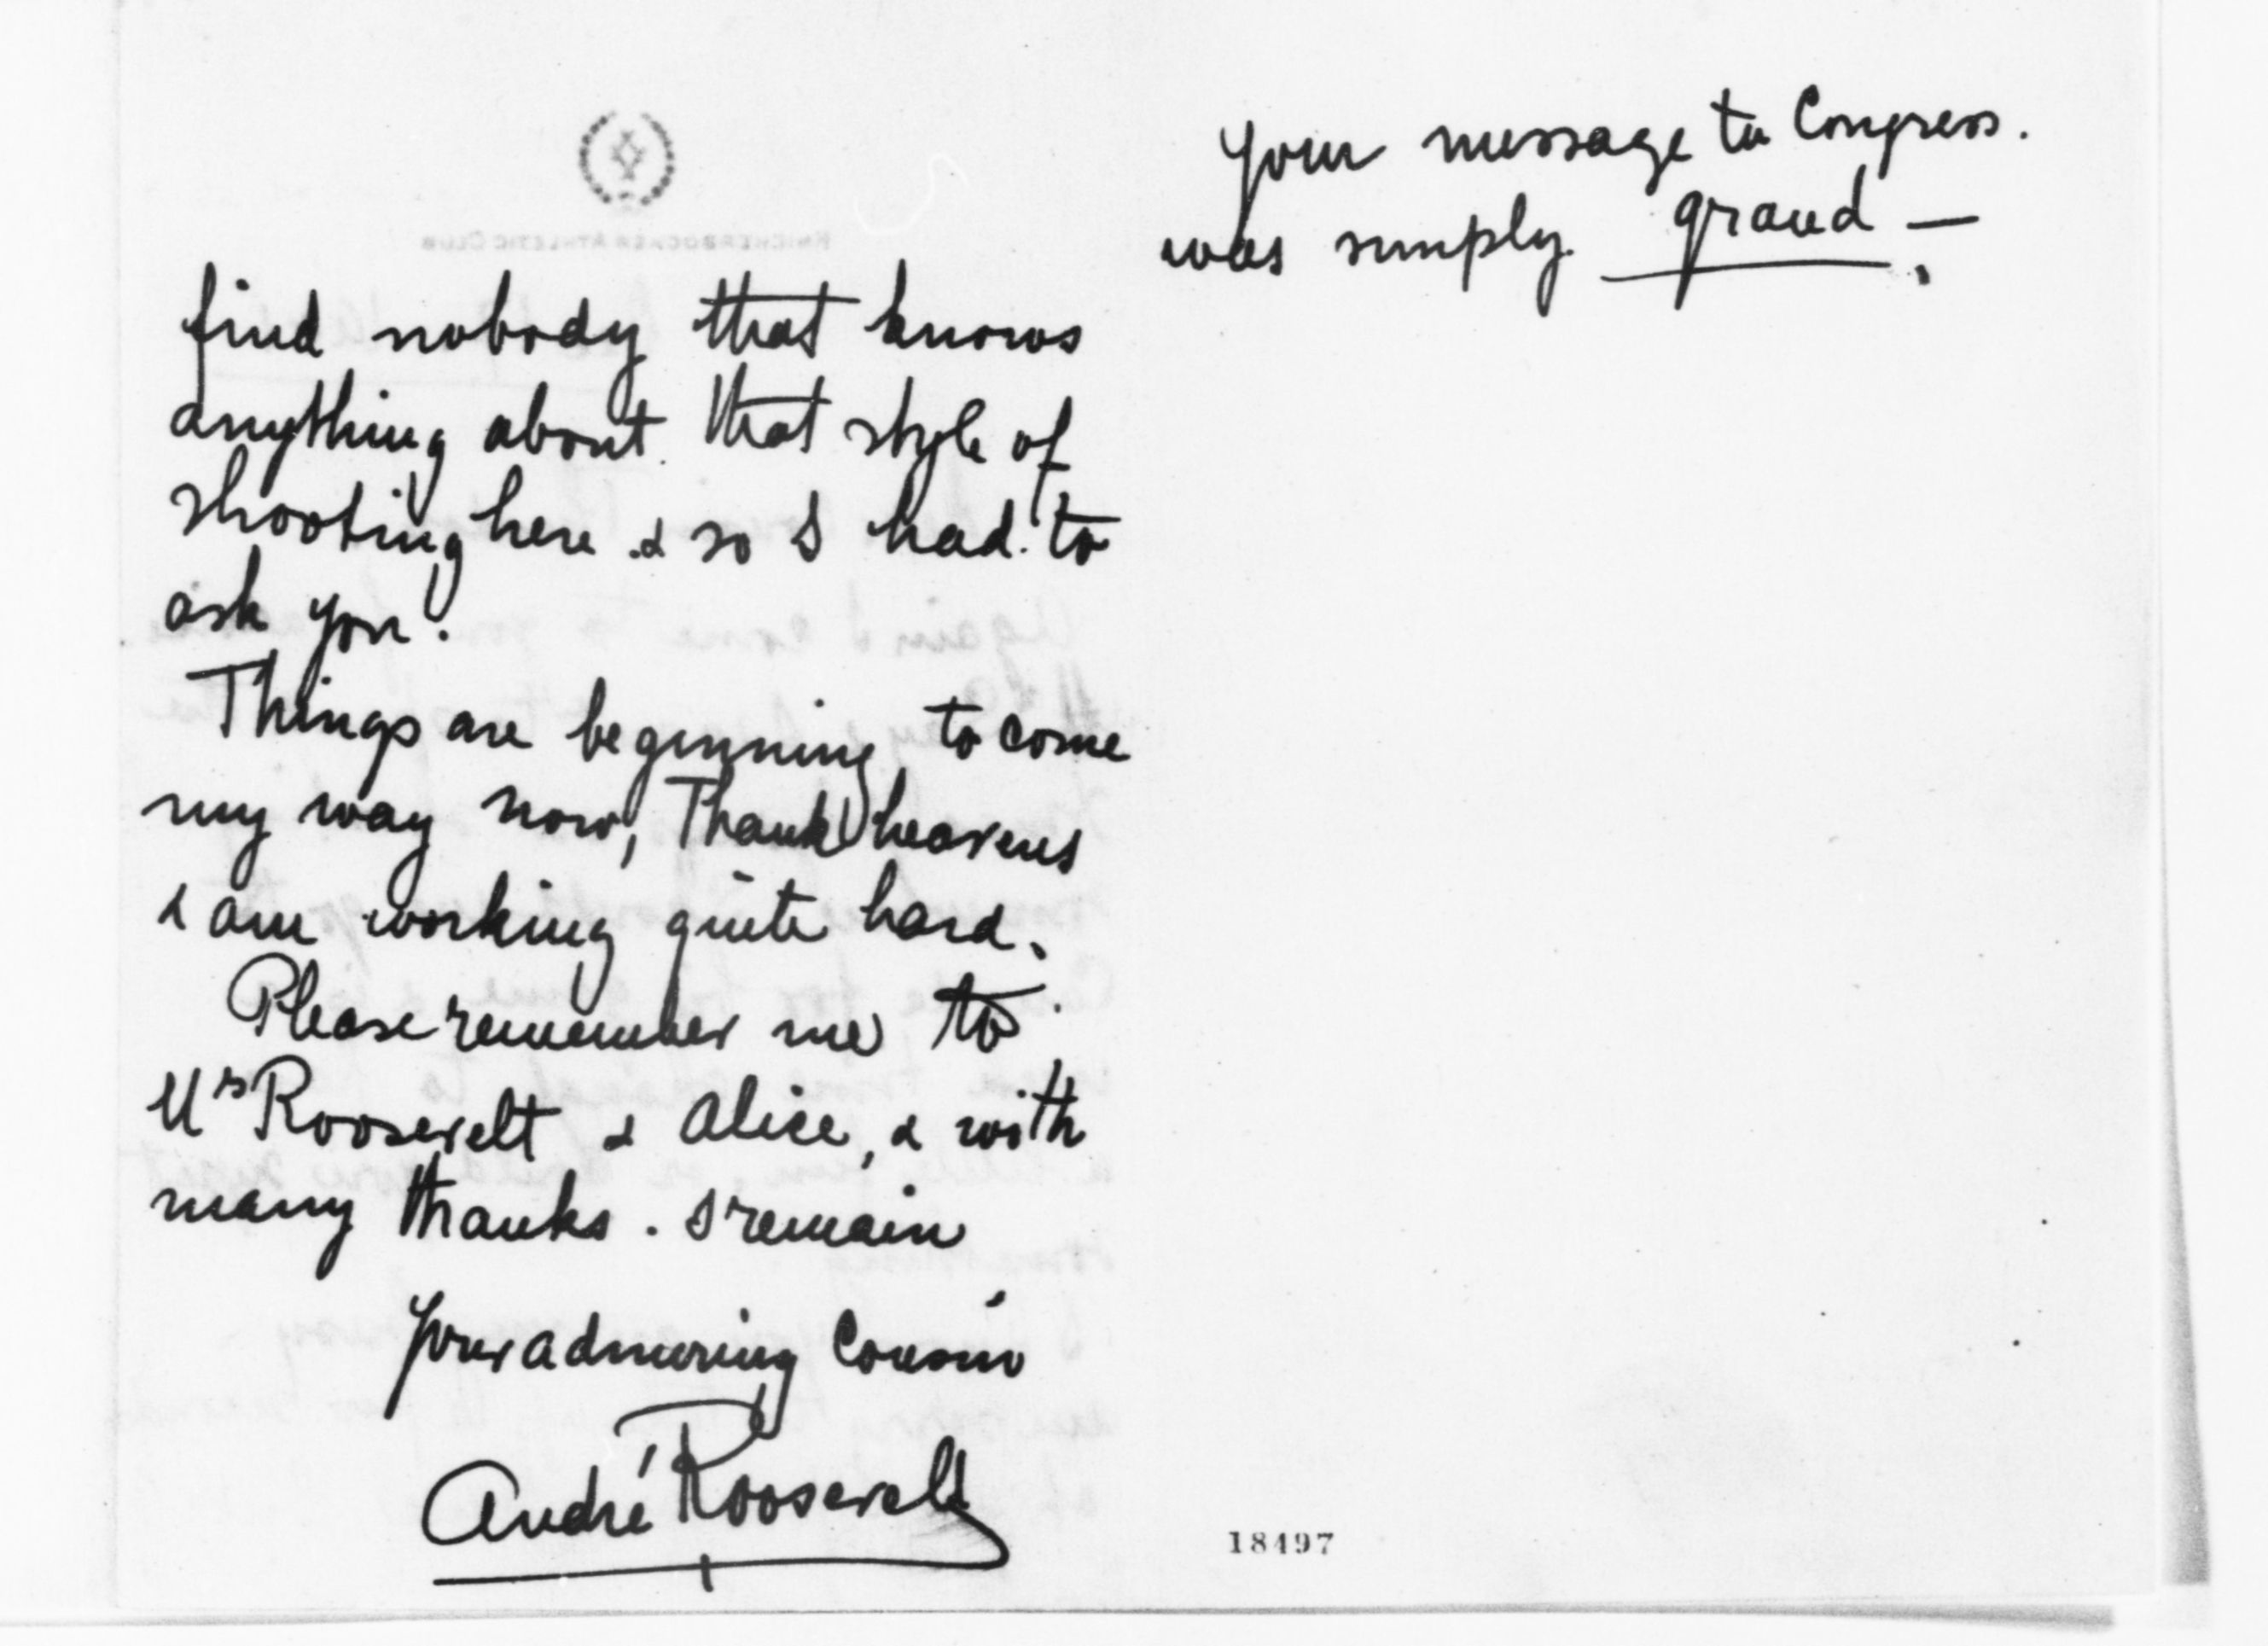 find nobody that knows
anything about that style of
shooting here & so I had to
ask you.
Things are beginning to come
my way now, Thank heavens
& am working quite hard.
Please remember me to
Mrs Roosevelt & Alice, & with
many thanks. I remain
Your admiring Cousin
André Roosevelt
Your message to Congress.
was simply grand —
18497
KNICKERBOCKER ATHLETIC CLUB